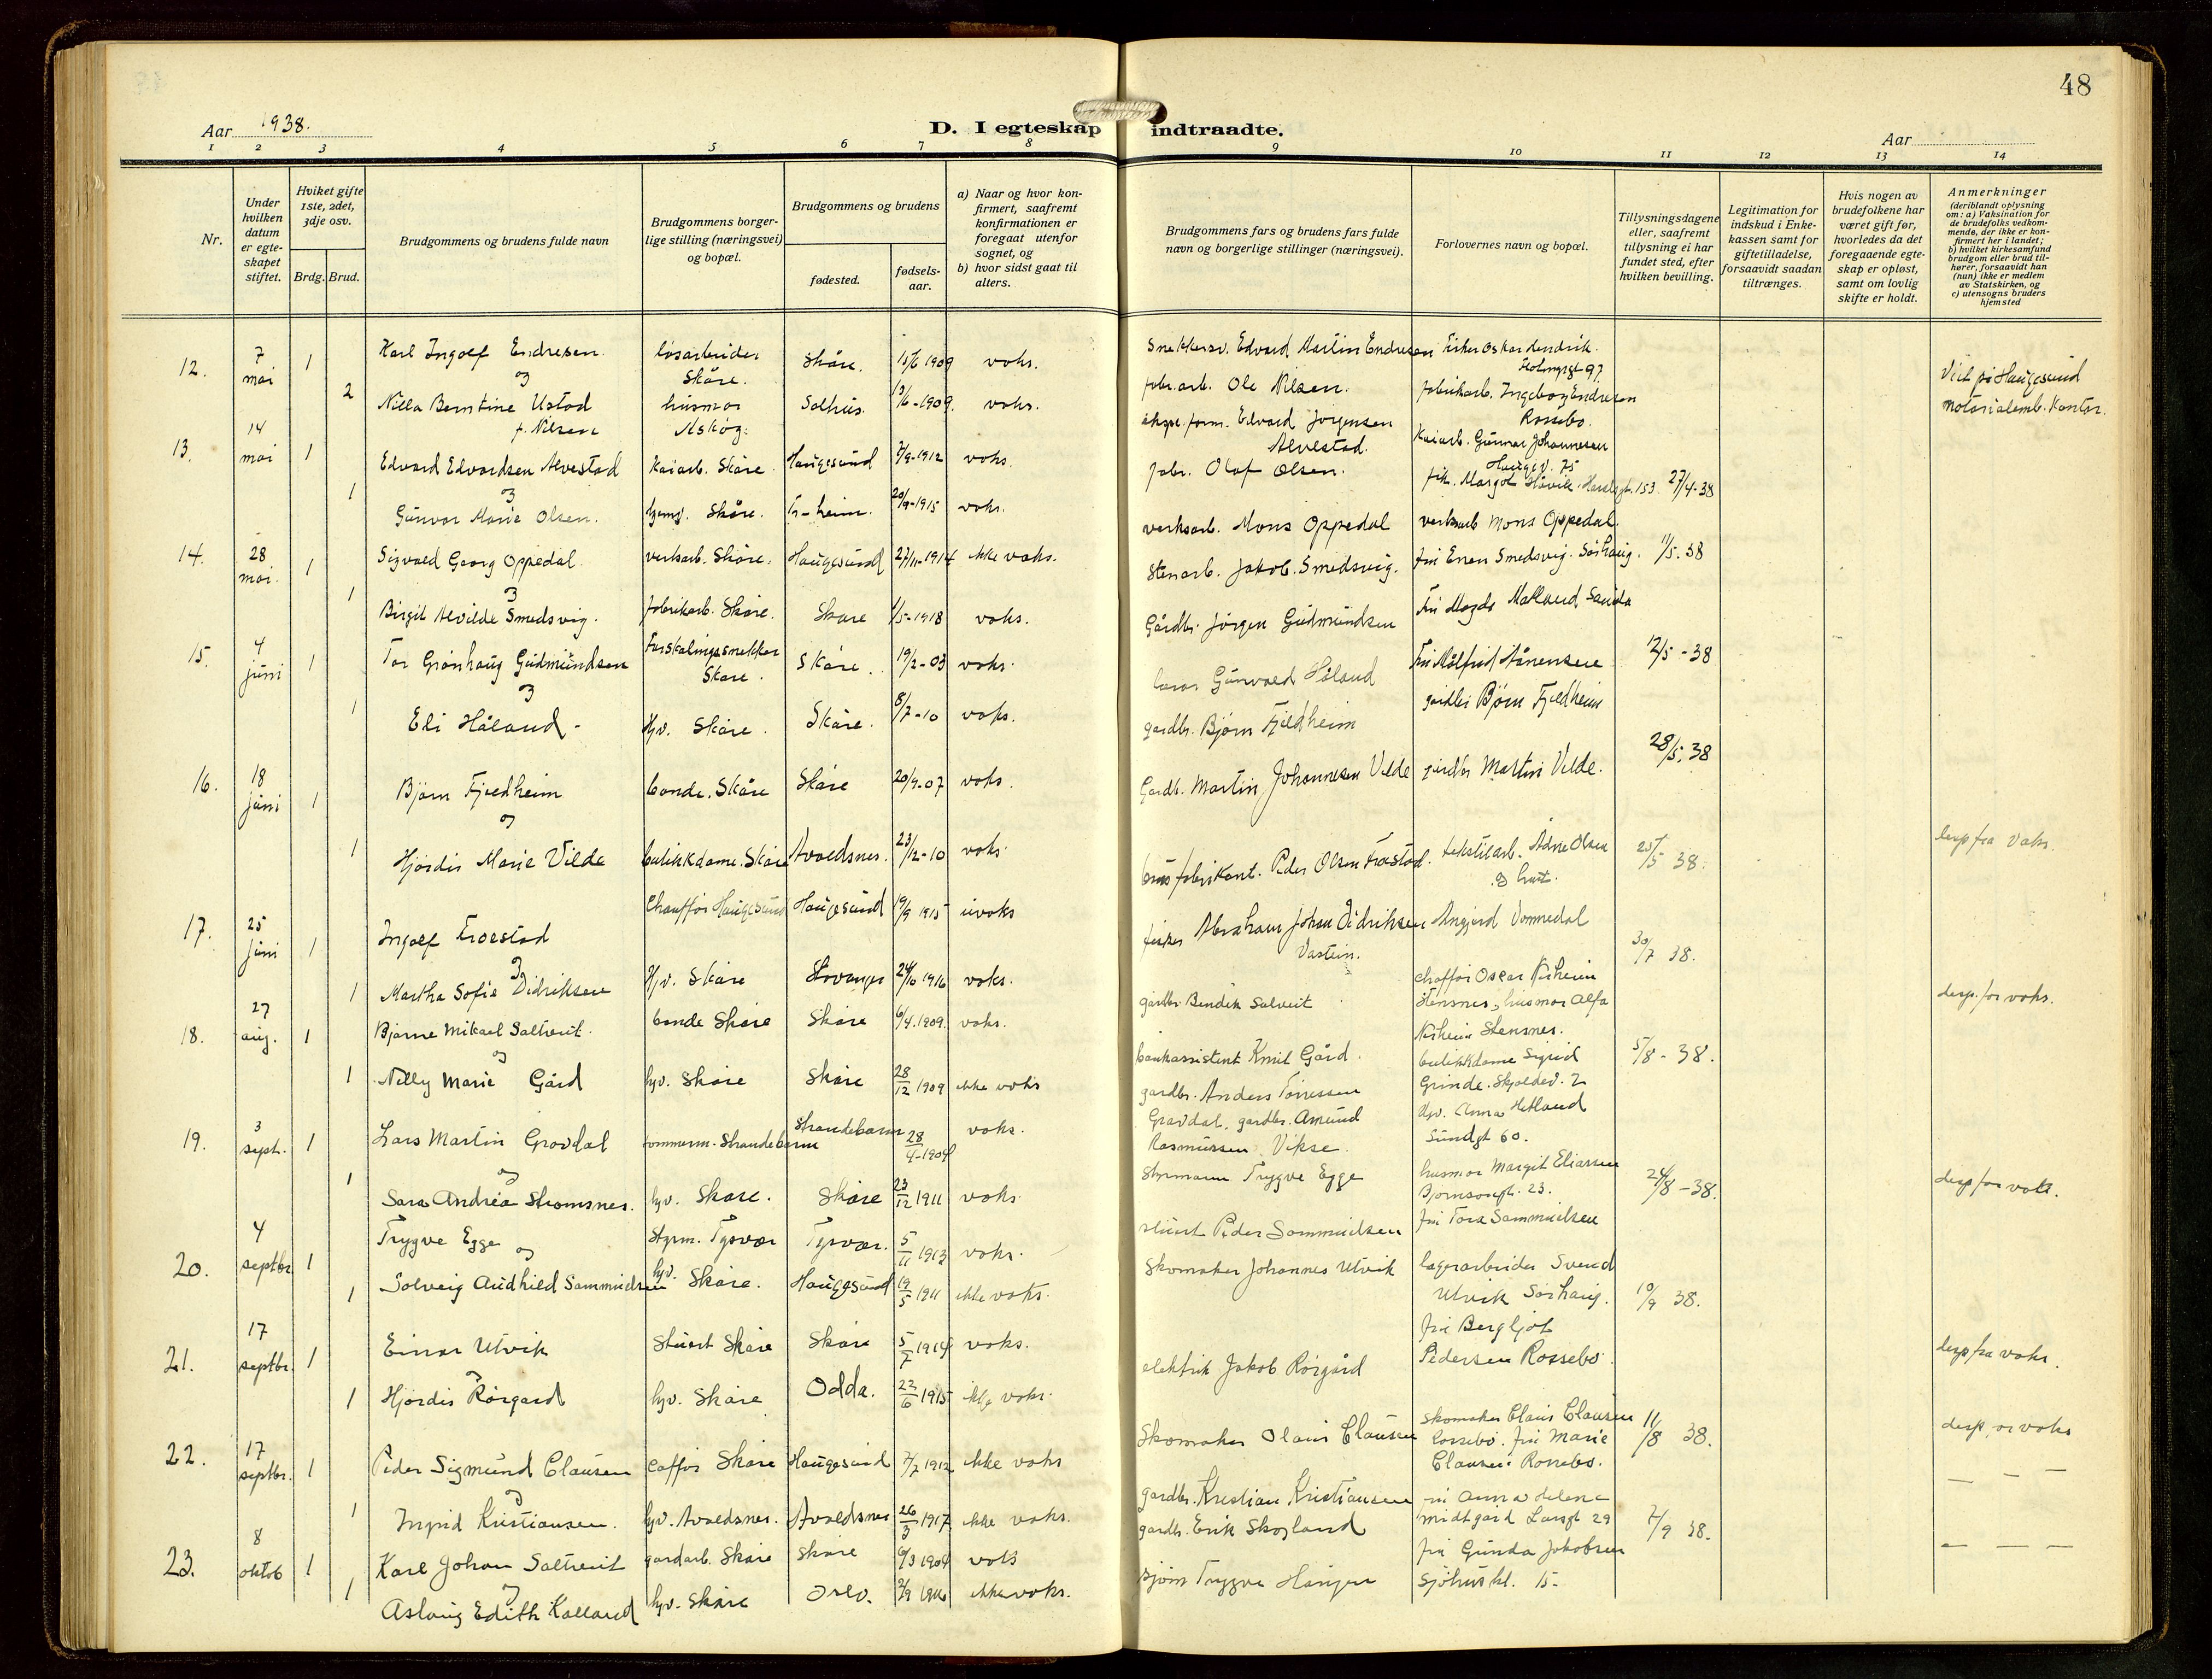 48
Aar 1938.
D. I egteskap indtraadte.
Aar
1 2 3 4 5 6 7 8 9 10 11 12 13 14
Nr.
Under hvilken datum er egteskapet stiftet.
Hviket gifte 1ste, 2det, 3dje osv.
Brdg. Brud.
Brudgommens og brudens fulde navn
Brudgommens borgerlige stilling (næringsvei) og bopæl.
Brudgommens og brudens
fødested.
fødselsaar.
a) Naar og hvor konfirmert, saafremt konfirmationen er foregaat utenfor sognet, og
b) hvor sidst gaat til alters.
Brudgommens fars og brudens fars fulde navn og borgerlige stillinger (næringsvei).
Forlovernes navn og bopæl.
Tillysningsdagene eller, saafremt tillysning ei har fundet sted, efter hvilken bevilling.
Legitimation for indskud i Enkekassen samt for giftetilladelse, forsaavidt saadan tiltrænges.
Hvis nogen av brudefolkene har været gift før, hvorledes da det foregaaende egteskap er opløst, samt om lovlig skifte er holdt.
Anmerkninger
(deriblandt oplysning om: a) Vaksination for de brudefolks vedkommende, der ikke er konfirmert her i landet;
b) hvilket kirkesamfund brudgom eller brud tilhører, forsaavidt han (hun) ikke er medlem av Statskirken, og
c) utensogns bruders hjemsted
12. 7 mai 1 Karl Ingolf Endresen løsarbeider Skåre. Skåre. 15/6 1909 voks. Snekkersv. Edvard Martin Endresen
og
2 Nilla Berntine Ustad f. Nilsen husmor Solhus. 13/6-1909. voks. fabr.arb. Ole Nilsen. fabrikarb. Ingeborg Endresen Rossebø.
Viet på Haugesund notarialemb. kontor.
13. 14 mai 1 Edvard Edvardsen Alvestad Kaiarb. Skåre. Haugesund 7/9-1912 voks. Edvard Jørgensen Alvestad. Kaiarb. Gunnar Johannesen 75
og
1 Gunvor Marie Olsen. Skåre. 20/9-1915 voks. fabr. Olaf Olsen. frk. Margot Håvik 153 27/4-38
14. 28 mai. 1 Sigvald Georg Oppedal verksarb. Skåre. Haugesund 27/11-1914 ikke voks. verksarb. Mons Oppedal verksarb Mons Oppedal.
og
1 Birgit Alvilde Smedsvig. fabrikarb. Skåre. Skåre 1/5-1918 voks. Stenarb. Jakob Smedsvig. Smedsvig. Sørhaug. 11/5-38
15. 4 juni 1 Tor Grønhaug Gudmundsen Forskalingssnekker Skåre. Skåre. 19/2-03 voks. Gårdbr. Jørgen Gudmundsen Fru Magda Matland Sauda
og
1 Eli Håland Hjv. Skåre. Skåre. 8/7-10 voks. Gunvald Håland Fru Målfrid 12/5-38
16. 18 juni 1 Bjørn Fjeldheim bonde. Skåre Skåre 20/9-07 voks. gardbr. Bjørn Fjeldheim gardbr. Bjørn Fjeldheim
og
1 Hjørdis Marie Vilde butikkdame. Skåre Avaldsnes. 23/12-10 voks. Gardb. Martin Johannesen Vilde gardbr Martin Vilde. 28/5.38
17. 25 juni 1 Ingolf Frøestad Chauffør Haugesund Haugesund 19/9 1915 uvoks fabrikant. Peder Olsen Frøestad. tekstilarb. Adne Olsen 25/5 38. desp fra voks.
og
1 Martha Sofie Didriksen Hjv. Skåre Stavanger 24/10 1916 voks. fisker Abraham Johan Didriksen Angjerd Vormedal
18. 27 aug. 1 Bjarne Mikael Saltveit. bonde Skåre Skåre 6/4.1909. voks. gardbr. Bendik Saltveit 30/7 38. desp. for voks.
og
1 Nelly Marie Gård hjv. Skåre Skåre 28/12 1909 ikke voks bankassistent Knut Gård.
19. 3 sept. 1 Lars Martin Gravdal tømmerm. Strandebarm Strandebarm 28/4-1904 voks. gardbr. Anders Tørressen Gravdal, butikkdame Sigrid Grinde. Skjoldev. 2 5/8-38.
og
1 Sara Andrea Strømsnes. hjv. Skåre. Skåre 23/12 1911 voks gardbr. Amund Rasmussen Vikse. Hjv. Anna Hetland Sundgt 60.
20. 4 septbr 1 Trygve Egge Styrm. Tysvær Tysvær. 5/11 1913 voks. Styrmann Trygve Egge husmor Margit Eliassen Bjørnsonsgt. 23. 24/8-38. desp for voks.
og
1 Solveig Audhild Sammuelsen hjv. Skåre. Haugesund 19/5 1911 ikke voks. stuert Peder Sammuelsen fru Tora Sammuelsen
21. 17 septbr. 1 Einar Utvik Stuert Skåre Skåre 5/7 1914 voks. Skomaker Johannes Utvik lagerarbeider Svend Utvik Sørhaug. 10/9 38.
og
1 Hjørdis Rørgard hjv. Skåre Odda. 22/6 1915 ikke voks. elektrik Jakob Rørgård fru Bergljot Pedersen Rossebø. desp fra voks.
22. 17 septbr. 1 Peder Sigmund Clausen Skåre Haugesund 7/7 1912 ikke voks Skomaker Olaus Clausen Skomaker Claus Clausen Rossebø. fru Marie Clausen Rossebø. 11/8 38. desp for voks
og
1 Ingrid Kristiansen. hjv. Avaldsnes. Avaldsnes 26/3 1917 ikke voks. gardbr. Kristian Kristiansen fru Anna Helene Midtgård 29 — — —
23. 8 oktob 1 Karl Johan Saltveit gardarb. Skåre Skåre 6/3 1904 voks gardbr. Erik Skogland 7/9 38.
og
1 Aslaug Edith Kalland hjv. Skåre Oslo. ikke voks. Trygve fru Gunda Jakobsen 15. — — —